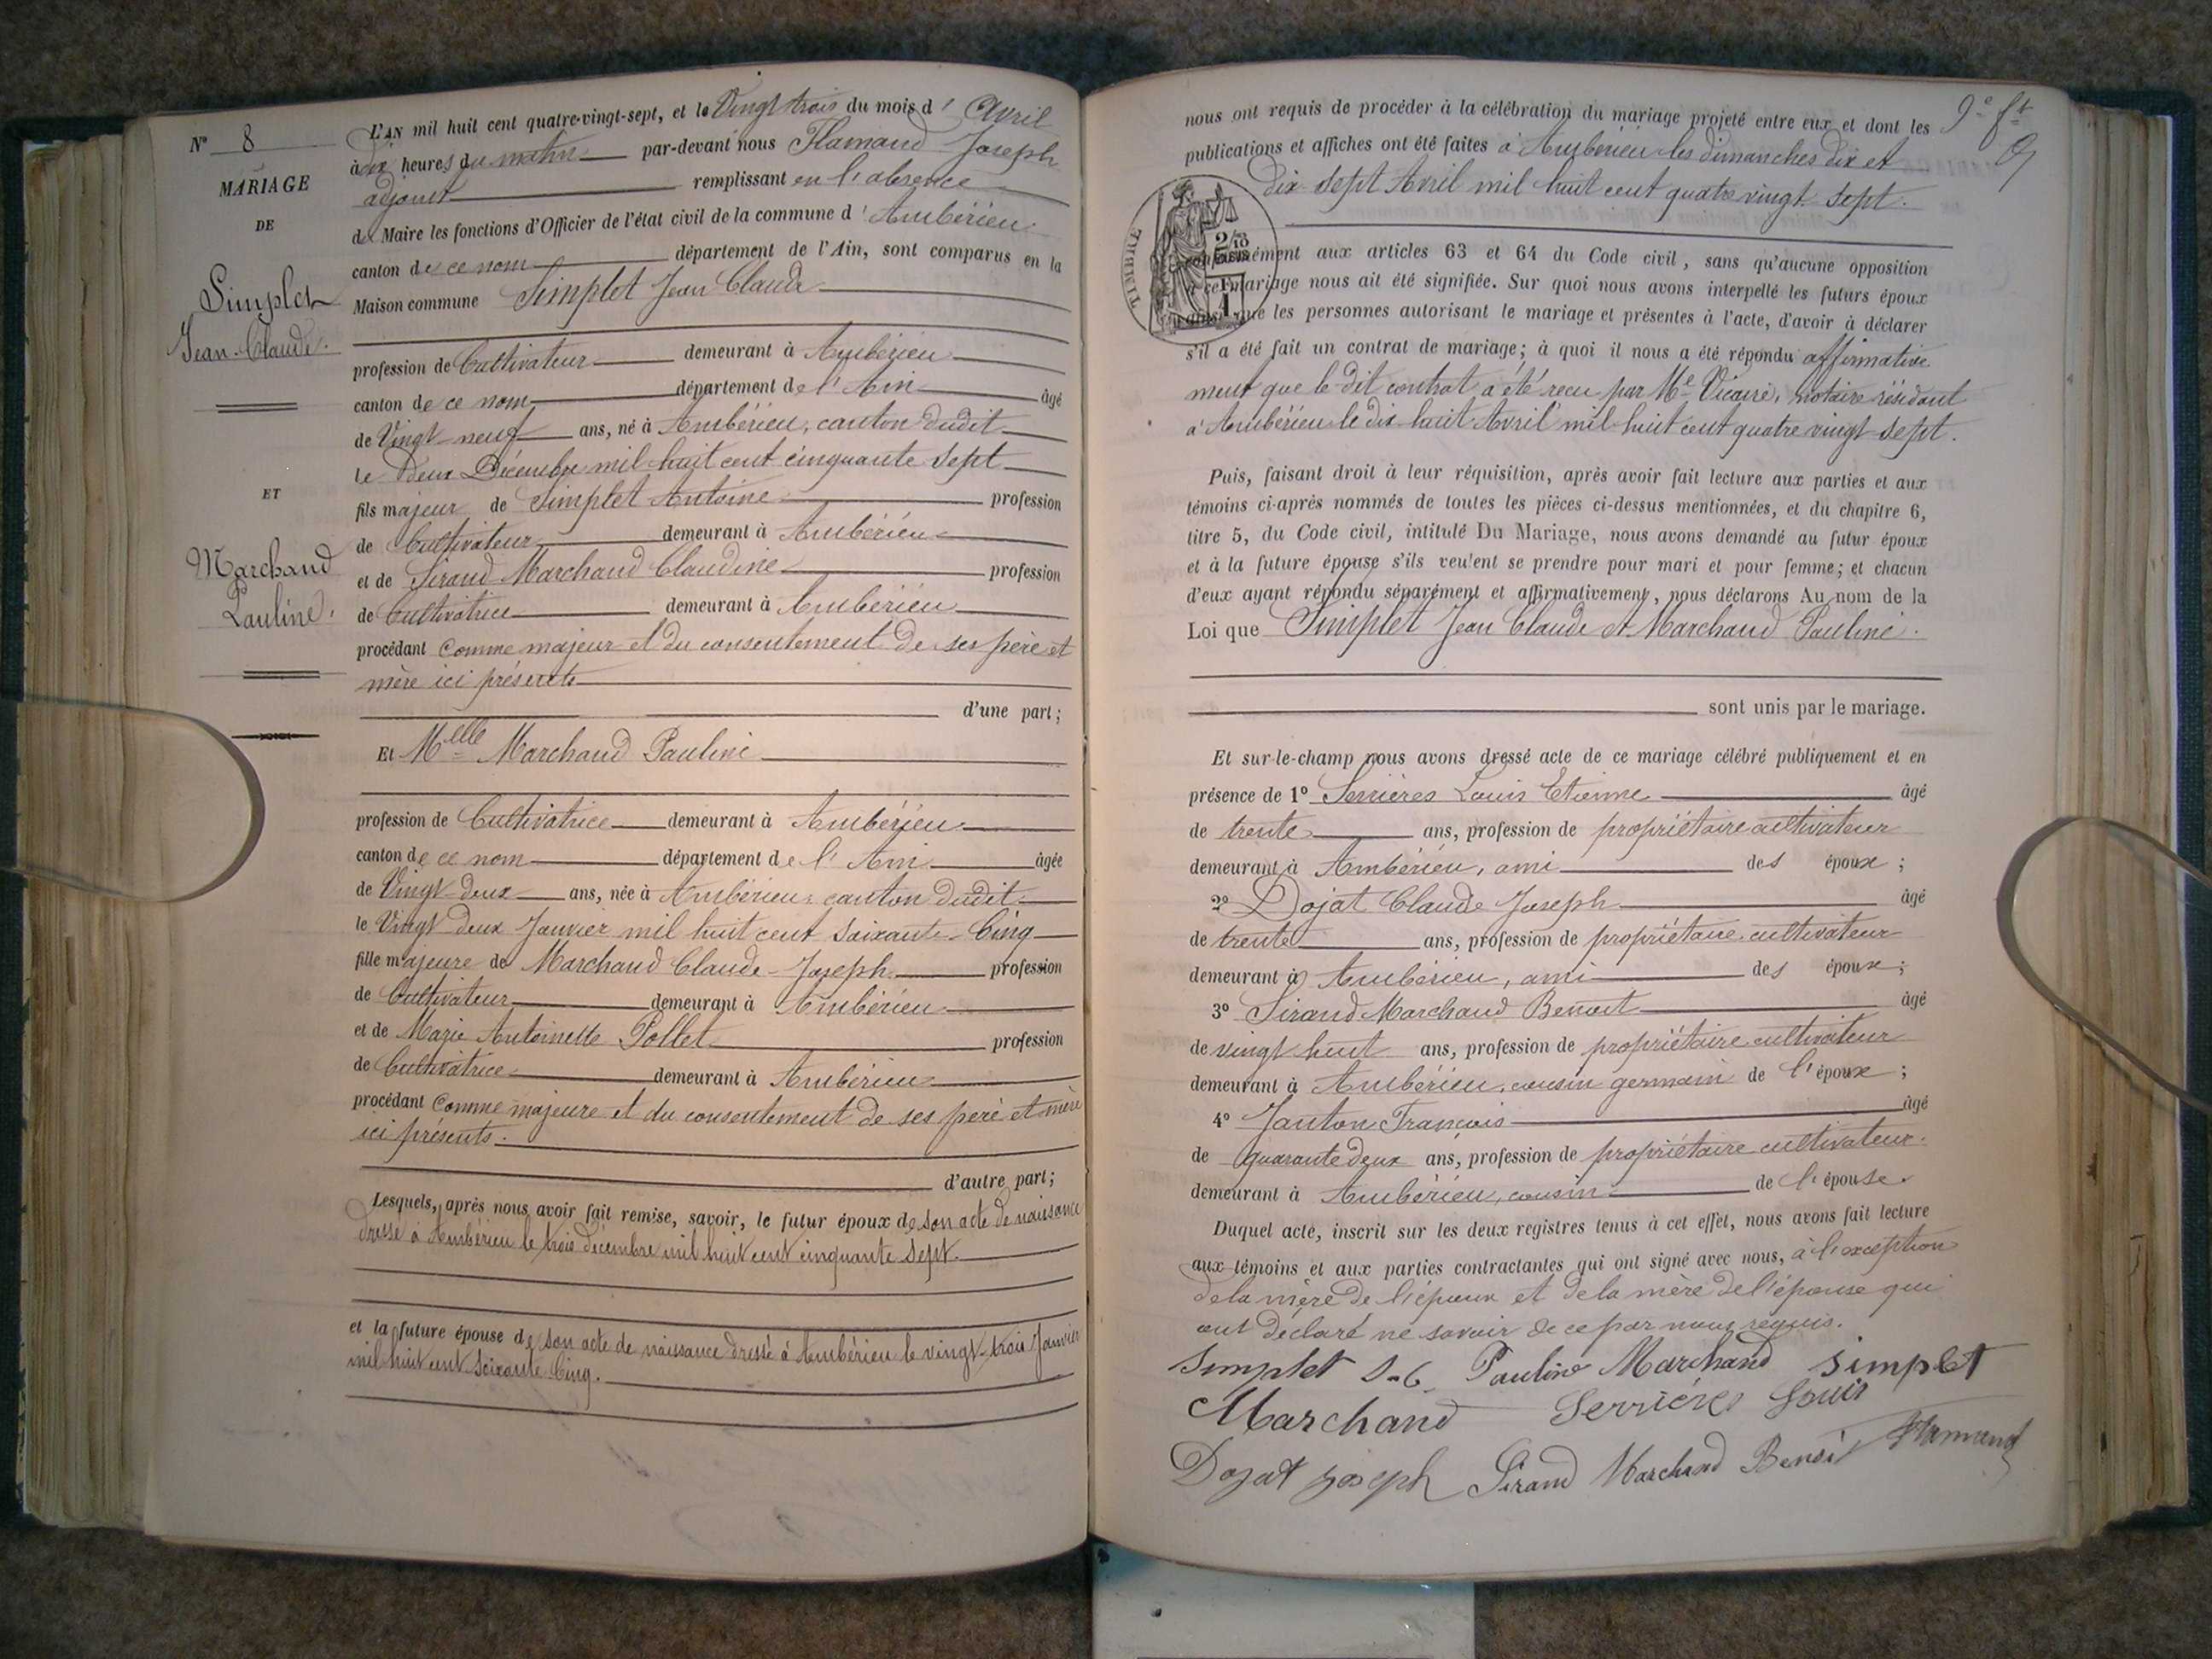 N° 8
MARIAGE
DE
Simplet
Jean-Claude.
ET
Marchand
Pauline.
L'AN mil huit cent quatre-vingt-sept, et le Vingt trois du mois d'Avril
à dix heures du matin par-devant nous Flamand Joseph
adjoint remplissant en l'absence
du Maire les fonctions d'Officier de l'état civil de la commune d'Ambérieu
canton de ce nom département de l'Ain, sont comparus en la
Maison commune Simplet Jean Claude
profession de Cultivateur demeurant à Ambérieu
canton de ce nom département de l'Ain âgé
de Vingt-neuf ans, né à Ambérieu, canton dudit
le Deux Décembre mil huit cent cinquante sept
fils majeur de Simplet Antoine profession
de Cultivateur demeurant à Ambérieu
et de Sirand Marchand Claudine profession
de Cultivatrice demeurant à Ambérieu
procédant comme majeur et du consentement de ses père et
mère ici présents
d'une part;
Et Melle Marchand Pauline
profession de Cultivatrice demeurant à Ambérieu
canton de ce nom département de l'Ain âgée
de Vingt-deux ans, née à Ambérieu, canton dudit
le Vingt deux Janvier mil huit cent soixante-Cinq
fille majeure de Marchand Claude-Joseph profession
de Cultivateur demeurant à Ambérieu
et de Marie Antoinette Pollet profession
de Cultivatrice demeurant à Ambérieu
procédant comme majeure et du consentement de ses père et mère
ici présents.
d'autre part;
Lesquels, après nous avoir fait remise, savoir, le futur époux de son acte de naissance
dressé à Ambérieu le trois décembre mil huit cent cinquante sept.
et la future épouse de son acte de naissance dressé à Ambérieu le vingt-trois Janvier
mil huit cent soixante Cinq.
9e ft
nous ont requis de procéder à la célébration du mariage projeté entre eux et dont les
publications et affiches ont été faites à Ambérieu les dimanches dix et
dix sept Avril mil huit cent quatre vingt sept.
TIMBRE
2/10
conformément aux articles 63 et 64 du Code civil, sans qu'aucune opposition
à ce mariage nous ait été signifiée. Sur quoi nous avons interpellé les futurs époux
ainsi que les personnes autorisant le mariage et présentes à l'acte, d'avoir à déclarer
s'il a été fait un contrat de mariage; à quoi il nous a été répondu affirmative
ment que le dit contrat a été reçu par Me Vicaire, notaire résidant
à Ambérieu le dix huit Avril mil huit cent quatre vingt sept.
Puis, faisant droit à leur réquisition, après avoir fait lecture aux parties et aux
témoins ci-après nommés de toutes les pièces ci-dessus mentionnées, et du chapitre 6,
titre 5, du Code civil, intitulé Du Mariage, nous avons demandé au futur époux
et à la future épouse s'ils veulent se prendre pour mari et pour femme; et chacun
d'eux ayant répondu séparément et affirmativement, nous déclarons Au nom de la
Loi que Simplet Jean Claude et Marchand Pauline.
sont unis par le mariage.
Et sur-le-champ nous avons dressé acte de ce mariage célébré publiquement et en
présence de 1° Serrières Louis Etienne âgé
de trente ans, profession de propriétaire cultivateur
demeurant à Ambérieu, ami des époux;
2° Dojat Claude Joseph âgé
de trente ans, profession de propriétaire cultivateur
demeurant à Ambérieu, ami des époux;
3° Sirand Marchand Benoit âgé
de vingt huit ans, profession de propriétaire cultivateur
demeurant à Ambérieu, cousin germain de l'époux;
4° Janton François âgé
de quarante deux ans, profession de propriétaire cultivateur.
demeurant à Ambérieu, cousin de l'épouse.
Duquel acte, inscrit sur les deux registres tenus à cet effet, nous avons fait lecture
aux témoins et aux parties contractantes qui ont signé avec nous, à l'exception
de la mère de l'époux et de la mère de l'épouse qui
ont déclaré ne savoir de ce par nous requis.
Simplet J-C Pauline Marchand Simplet
Marchand Serrières Louis
Dojat joseph Sirand Marchand Benoit Flamand